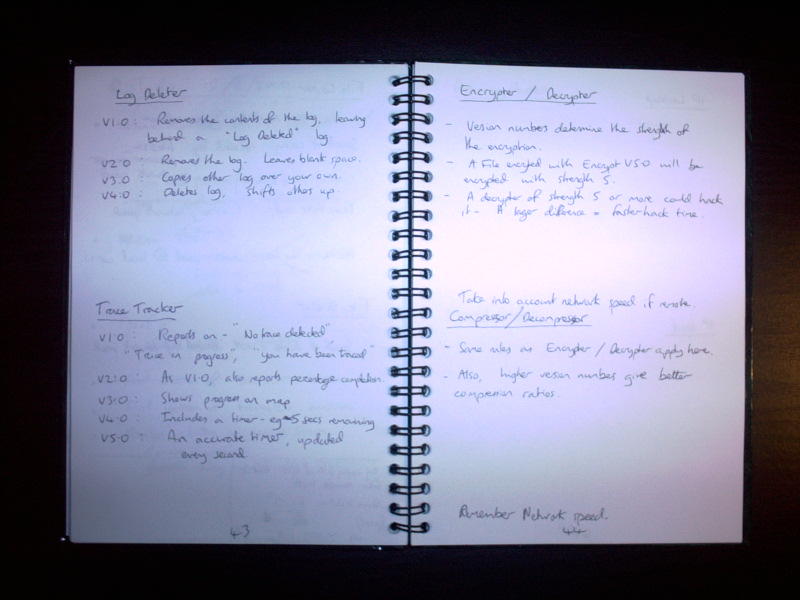 Log Deleter
V1.0 : Removes the contents of the log, leaving
behind a "Log Deleted" log.
V2.0 : Removes the log. Leaves blank space.
V3.0 : Copies other log over your own.
V4.0 : Deletes log, shifts others up.
Trace Tracker
V1.0 : Reports on - "No trace detected",
"Trace in progress", "you have been traced"
V2.0 : As V1.0, also reports percentage completion.
V3.0 : Shows progress on map
V4.0 : Includes a timer - eg 5 secs remaining
V5.0 : An accurate timer, updated
every second.
43
Encrypter / Decrypter
- Version numbers determine the strength of
the encryption.
- A File encrypted with Encrypt V5.0 will be
encrypted with strength 5.
- A decrypter of strength 5 or more could hack
it - A larger difference = faster hack time.
Take into account network speed if remote.
Compressor / Decompressor
- Same rules as Encrypter / Decrypter apply here.
- Also, higher version numbers give better
compression ratios.
Remember Network speed.
44